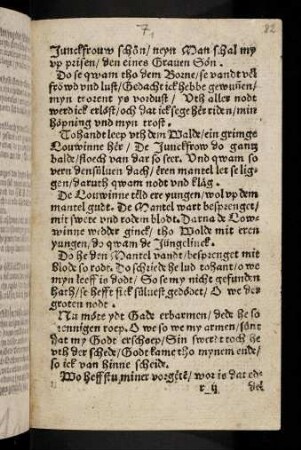 7,
82
Junckfrouw schön/neyn Man schal my
vp prisen/den eines Grauen Sön.
Do se qwam tho dem Borne/se vandt vel
frowd vnd lust/Gedacht ick hebbe gewunen/
myn trorent ys vordust/ Vth alles nodt
werd ick erlöst/och dat ick sege hër riden/min
höpning vnd myn trost.
Tohandt leep vth dem Walde/ein grimge
Louwinne hër/ De Junckfrow do gantz
balde/floech van dar so seer. Vnd qwam so
vern densüluen dach/eren mantel let se lig-
gen/daruth qwam nodt vnd klag.
De Louwinne teld ere yungen/wol vp dem
mantel gudt. De Mantel wart besprenget/
mit swete vnd rodem blodt. Darna de Low-
winne wedder ginck/tho Wolde mit eren
yungen/do qwam de Jüngelinck.
Do he den Mantel vandt/besprenget mit
blode so rodt. Do schriede he lud tohant/o we
myn leeff is dodt/ So se my nicht gefunden
hath/se hefft sick süluest gedödet/ O we der
groten nodt.
Nu möte ydt Gade erbarmen/dede he so
mennigen roep. O we so we my armen/sönt
dat my Godt erschoep/Sin swerdt toch he
vth der schede/Godt kame tho mynem ende/
so ick van hinne scheide.
Wo heffstu miner vorgëten/wor is dat ed-
r ij
del